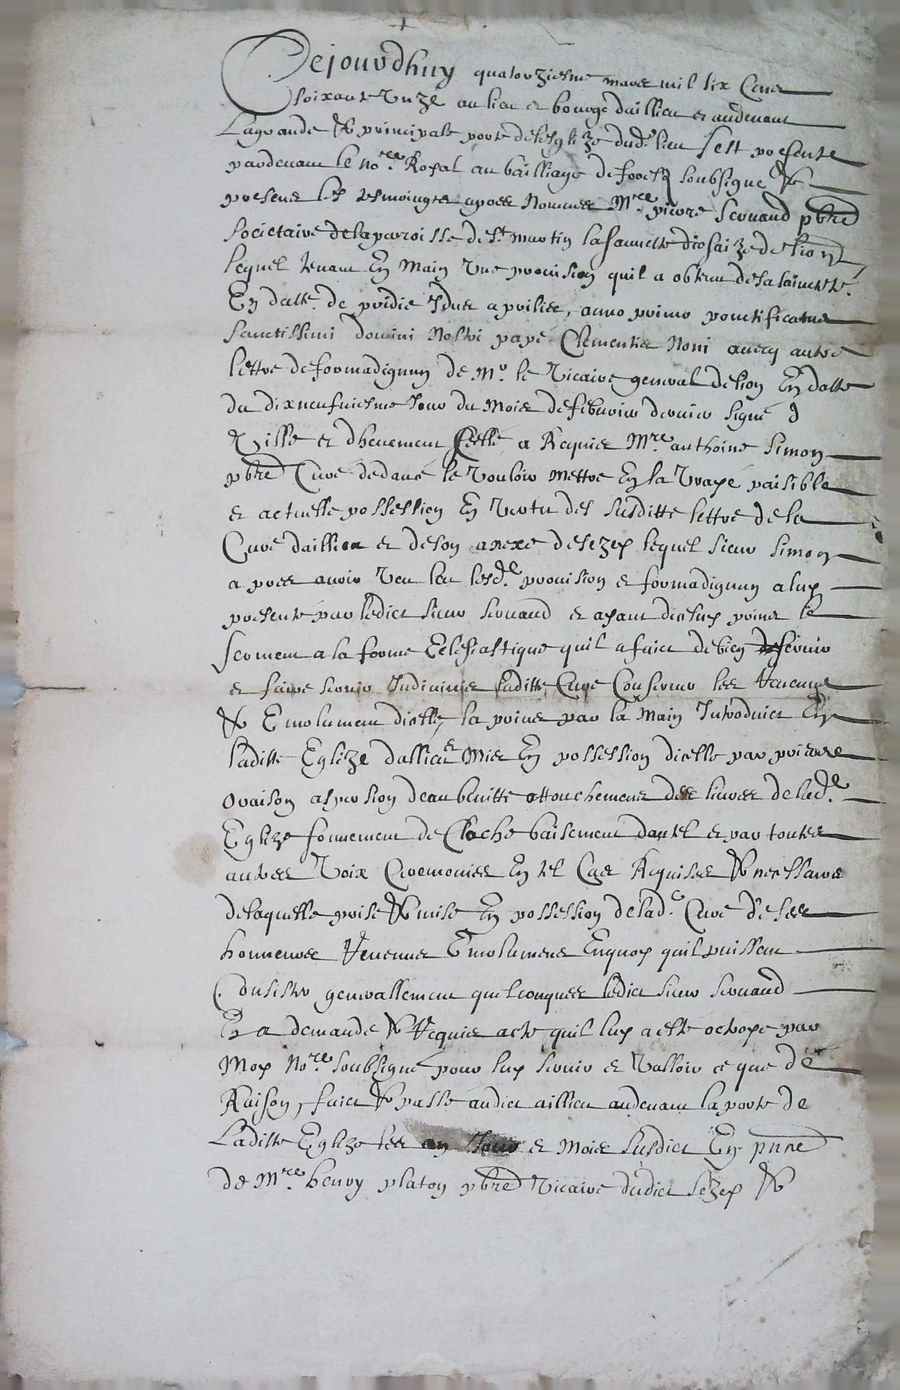 Cejourdhuy quatorziesme mars mil six cens
soixante unze au lieu et bourg daillieu et audevant
Lagrande & principale porte deleglize dud. lieu sest presente
pardevant le nore Royal au bailliage deforestz soubsigne &
presens les tesmoingts apres nommes Mre pierre Seruaud pbre
Societaire delaparroisse de St martin lasauvette diosaize delion
lequel tenant En Main Une provision quil a obtenu desa saintete
En datte de pridie Idus aprilis, anno primo pontificatus
Sanctissimi domini Nostri pape Clementis Noni avecq autre
lettre deformadignum de Mr le Vicaire general delion En datte
du dixneufviesme Jour du Mois defebvrier dernier signe
Ville et dheuement Scelle a Requis Mre anthoine Simon
pbre Cure dedavé le Vouloir Mettre En la Vraye paisible
et actuelle possession En Vertu des susditte lettre de la
Cure daillieu et deson anexe desezey lequel sieur Simon
apres avoir Veu leu lesd. provision et formadignum aluy
presente par ledict sieur Seruaud et ayant dicelluy prins le
Serment a la forme Eclesiastique quil a faict debien deservir
et faire servir Indivinis laditte Cure Conserver les Revenus
& Emolument dicelle, la prins par la Main Introduict En
laditte Eglize daillieu et Mis En possession dicelle par priere
oraison aspersion deau benitte attouchement des livres de lad.
Eglize sonnement de Cloche baisement dautel et par toutes
autres Voix Ceremonies En tel Cas Requises & necessaires
delaquelle prise & mise En possession delad. Cure Desses
honneures Revenus Emolumens Enquoy quil puissent
Consister generallement quelconques ledict sieur Seruaud
En a demande & Requis acte quil luy a este octroye par
Moy Nore soubsigne pour luy servir et Valloir ce que de
Raison, faict & passe audict aillieu audevant la porte de
Laditte Eglize les an Jour et Mois susdict En pnce
de Mre henry platon pbre Vicaire dudict Sezey &